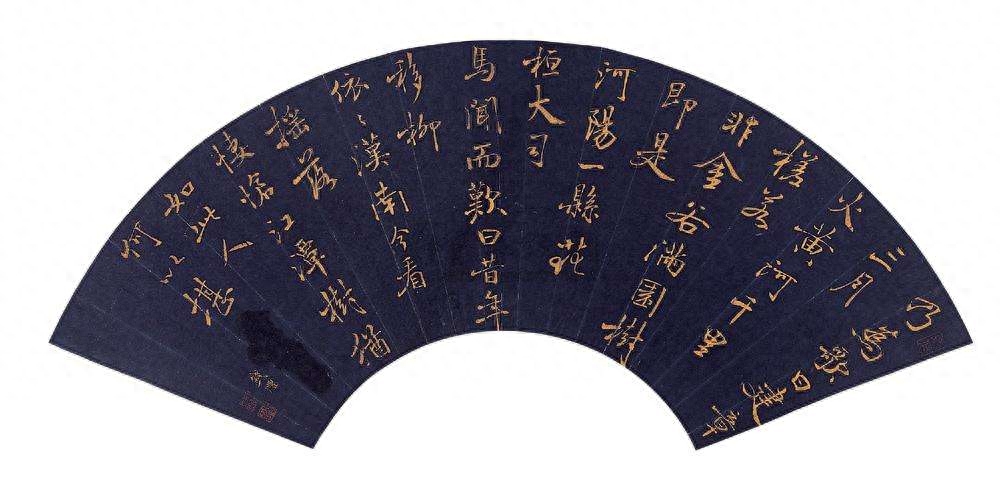 乃為歌曰建章
三月
火黃河千里
槎若
非金谷滿園樹
即是
河陽一縣花
桓大司
馬聞而歎曰昔年
移柳
依〻漢南今看
搖落
悽愴江潭樹猶
如此人
何以堪